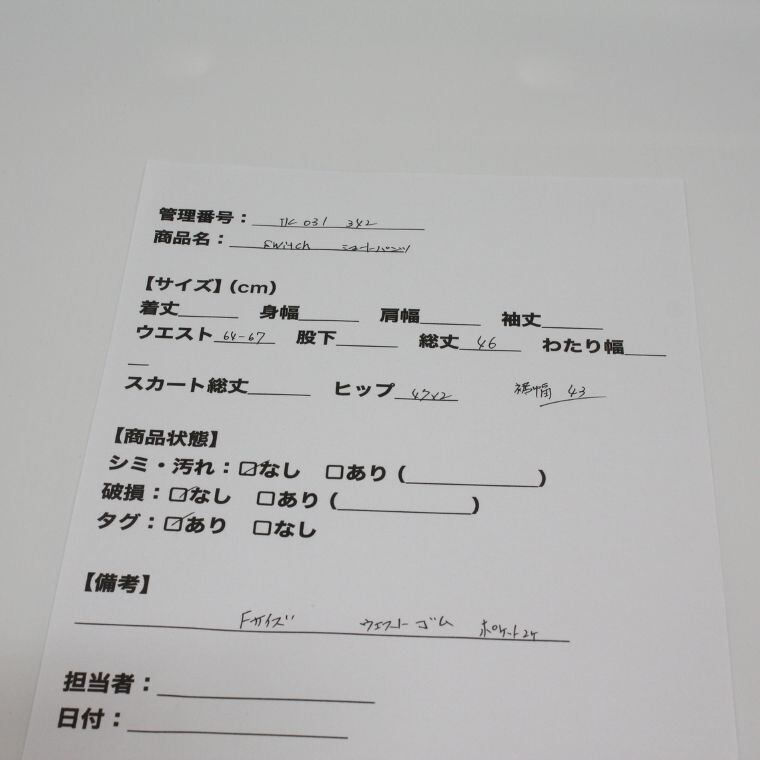 管理番号： TK 031 342
商品名： switch ショートパンツ
【サイズ】(cm)
着丈______ 身幅______ 肩幅______ 袖丈______
ウエスト 64-67 股下______ 総丈 46 わたり幅____
__
スカート総丈______ ヒップ 47×2 裾幅 43
【商品状態】
シミ・汚れ：☑なし □あり (____________)
破損：☑なし □あり (____________)
タグ：☑あり □なし
【備考】
Fサイズ ウエストゴム ポケット2ケ
担当者：____________________
日付：____________________